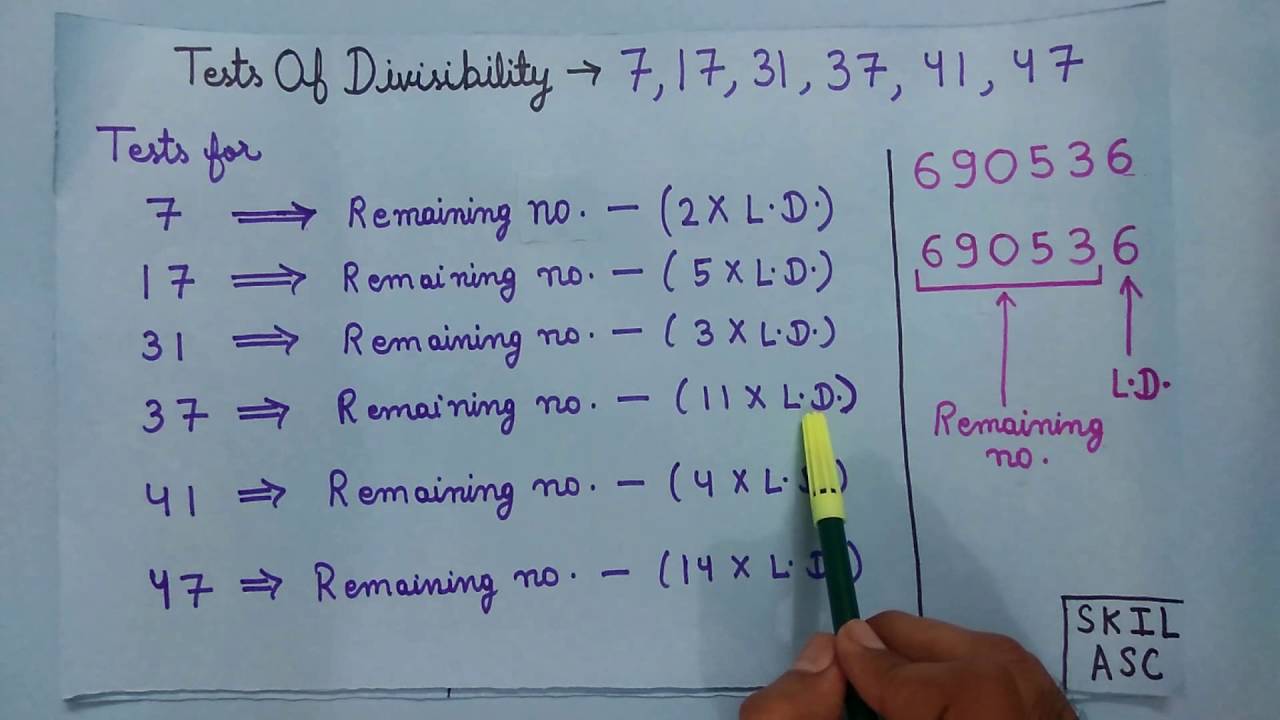 Tests Of Divisibility → 7, 17, 31, 37, 41, 47
Tests for
7 ⟹ Remaining no. — (2 X L.D.)
17 ⟹ Remaining no. — (5 X L.D.)
31 ⟹ Remaining no. — (3 X L.D.)
37 ⟹ Remaining no. — (11 X L.D.)
41 ⟹ Remaining no. — (4 X L.
47 ⟹ Remaining no. — (14 X L.D)
690536
690536
L.D.
Remaining
no.
SKIL
ASC